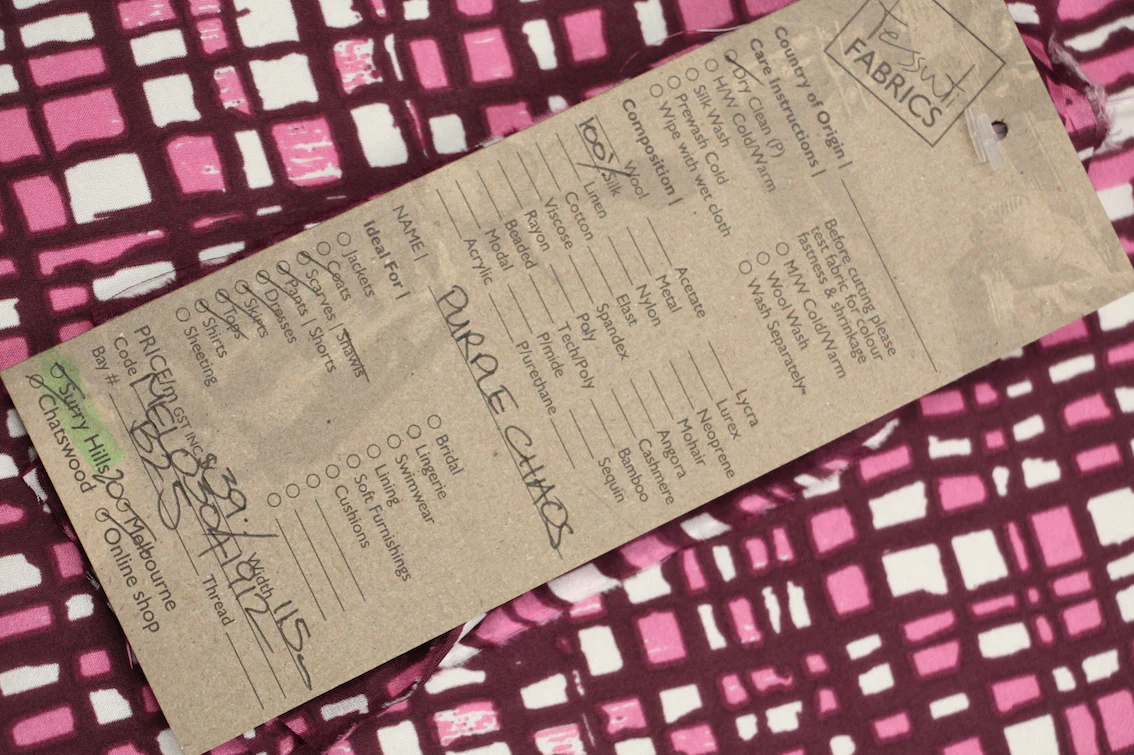 Tessuti
FABRICS
Country of Origin |
Care Instructions |
Dry Clean (P)
H/W Cold/Warm
Silk Wash
Prewash Cold
Wipe with wet cloth
Before cutting please
test fabric for colour
fastness & shrinkage
M/W Cold/Warm
Wool Wash
Wash Separately
Composition |
Wool
100% Silk
Linen
Cotton
Viscose
Rayon
Beaded
Modal
Acrylic
Acetate
Metal
Nylon
Elast
Spandex
Poly
Tech/Poly
P/mide
P/urethane
Lycra
Lurex
Neoprene
Mohair
Angora
Cashmere
Bamboo
Sequin
NAME | PURPLE CHAOS
Ideal For |
Jackets
Coats
Scarves | Shawls
Pants | Shorts
Dresses
Skirts
Tops
Shirts
Sheeting
Bridal
Lingerie
Swimwear
Lining
Soft Furnishings
Cushions
PRICE/m GST INC $39. Width 115
Code
Bay # B25 Thread
Surry Hills Melbourne
Chatswood Online shop